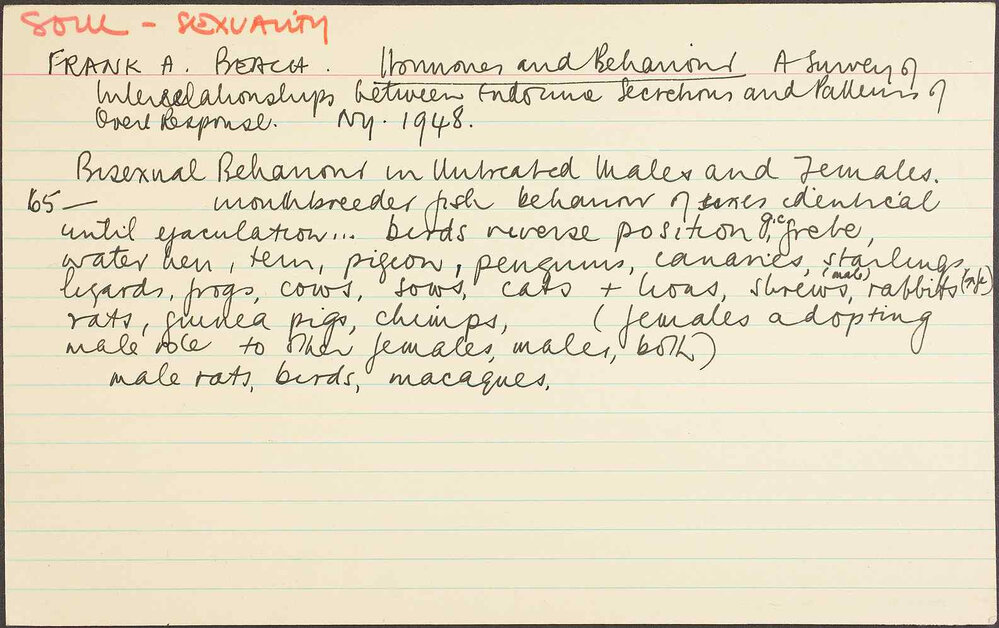 SOUL - SEXUALITY
FRANK A. BEACH. Hormones and Behaviour A Survey of
Interrelationships between Endocrine Secretions and Patterns of
Overt Response. NY. 1948.
Bisexual Behaviour in Untreated Males and Females.
65 — mouthbreeder fish behavior of sexes identical
until ejaculation... birds reverse position, grebe,
water hen, tern, pigeon, penguins, canaries, starlings,
lizards, frogs, cows, sows, cats + lions, shrews, (male) rabbits
rats, guinea pigs, chimps, (females adopting
male role to other females, males, both)
male rats, birds, macaques.